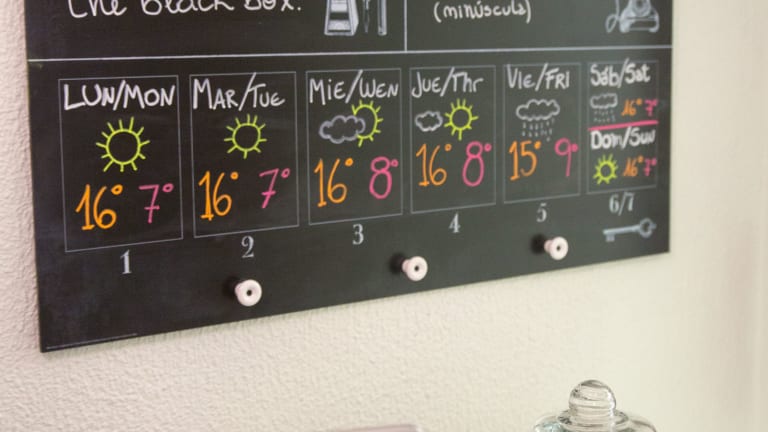 the black box.
(minúscula)
LUN/MON
16° 7°
1
MAR/TUE
16° 7°
2
MIE/WEN
16° 8°
3
JUE/Thr
16° 8°
4
VIE/FRI
15° 9°
5
Sáb/Sat
16° 7°
Dom/Sun
16° 7°
6/7